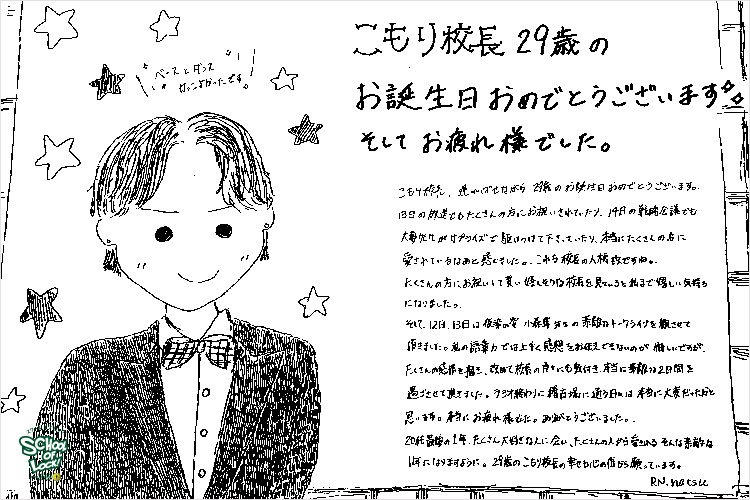 こもり校長 29歳の
お誕生日おめでとうございます
そして お疲れ様でした。
ベースとダンス
かっこよかったです
こもり校長、遅ればせながら 29歳のお誕生日おめでとうございます。
13日の放送でもたくさんの方にお祝いされていたり、14日の戦略会議でも
サプライズで駆けつけて下さっていたり、本当にたくさんの方に
愛されているなあと感じました。これも校長の人柄ですね。
たくさんの方にお祝いして貰い嬉しそうな校長を見ていると私まで嬉しい気持ち
になりました。
そして、12日、13日は 小森隼 の素敵なトークライブを観させて
頂きました。私の語彙力では上手く感想をお伝えできないのが悔しいですが、
たくさんの 改めて校長の にも気付き、本当に素敵な2日間を
過ごさせて頂きました。ラジオ終わりに稽古場に通う日々は本当に大変だったと
思います。本当にお疲れ様でした。ありがとうございました。
20代最後の1年、たくさん大好きな人に会い、たくさんの人から愛される そんな素敵な
1年になりますように。29歳のこもり校長の幸せを心の底から願っています。
RN.natsu
SCHOOL
OF
LOCK!